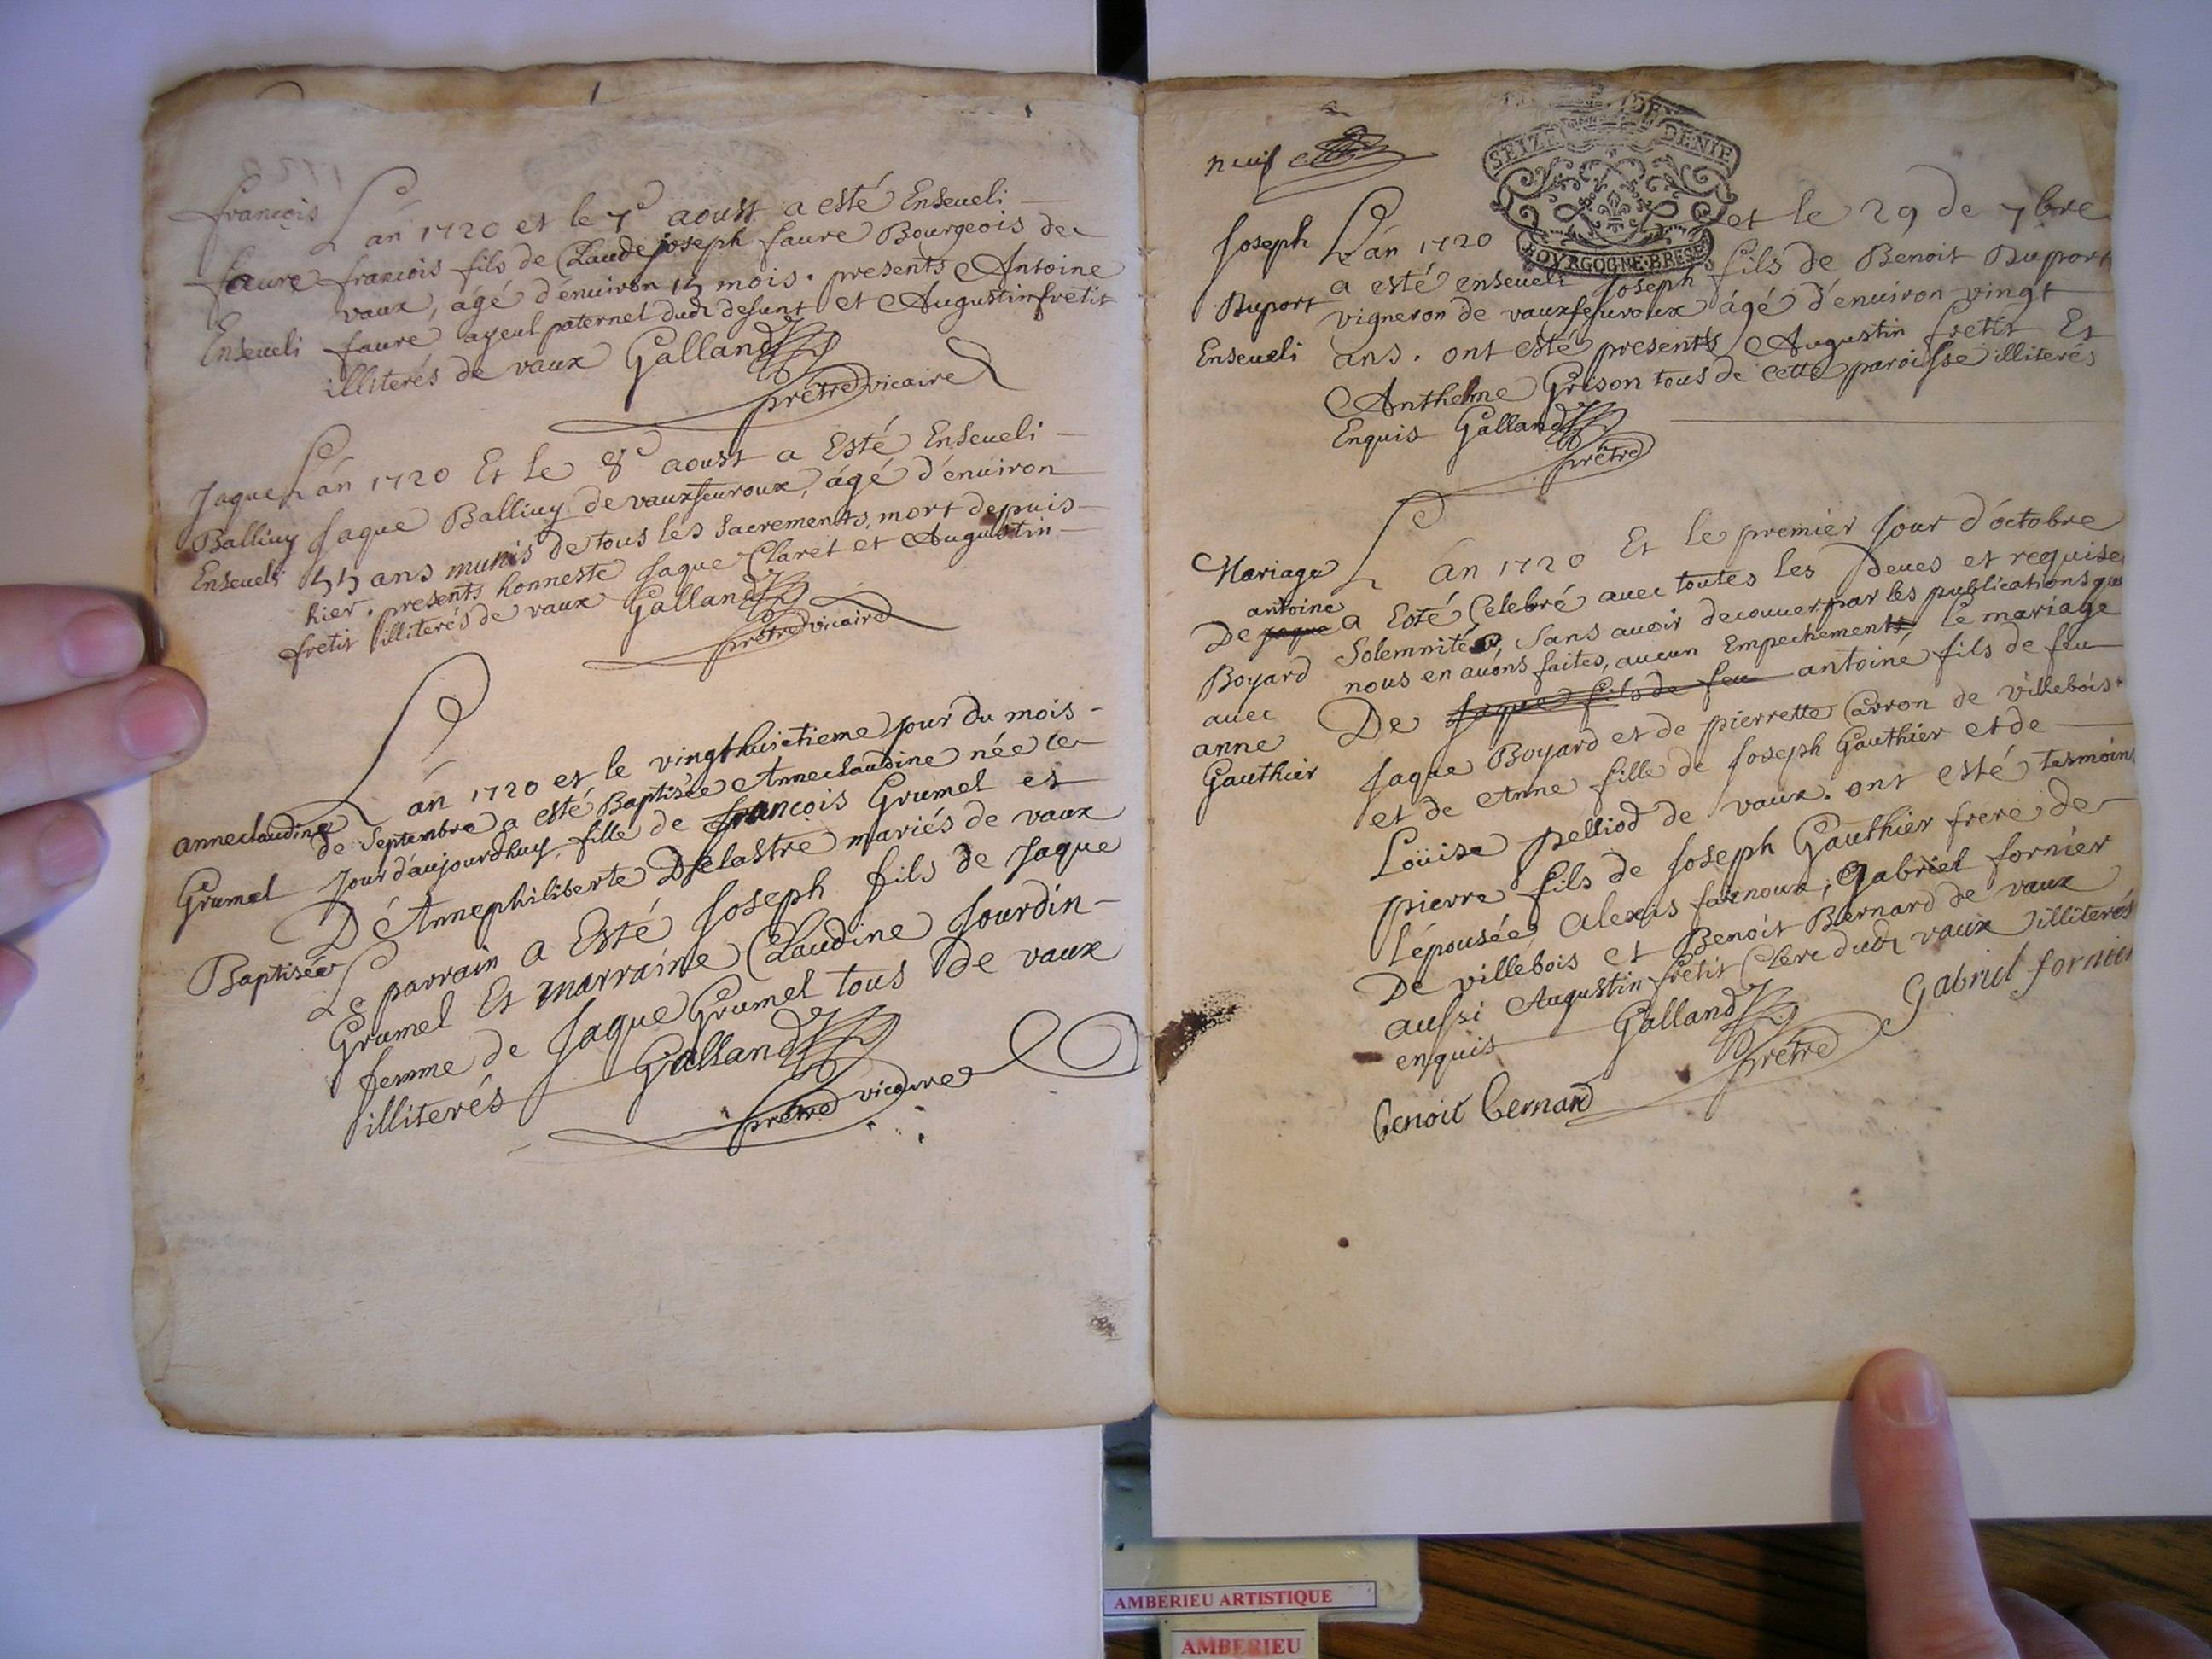 françois
L'an 1720 et le 7e aoust a esté Enseveli
faure
françois fils de Claude joseph faure Bourgeois de
vaux, agé d'environ 15 mois. presents Antoine
Enseveli
faure ayeul paternel dudt defunt et Augustin fretit
illiterés de vaux Galland
prêtre vicaire
Jaque
L'an 1720 Et le 8e aoust a Esté Enseveli
Balliuy
Jaque Balliuy de vauxfeuroux, âgé d'environ
Enseveli
55 ans munis de tous les sacrements, mort depuis
hier. presents honneste Jaque Claret et Augustin
fretit illiterés de vaux Galland
prêtre vicaire
L'an 1720 et le vingthuictieme jour du mois
anneclaudine
de Septembre a esté Baptisée Anneclaudine née le
Grumel
Jour d'aujourdhuy, fille de françois Grumel et
D'Annephiliberte Delastre mariés de vaux
Baptisée
Le parrain a Esté Joseph fils de Jaque
Grumel Et marraine Claudine Jourdin
femme de Jaque Grumel tous de vaux
illiterés Galland
prêtre vicaire
neuf
SEIZE DENIE
BOVRGOGNE·BRESSE
Joseph
L'an 1720 et le 29 de 7bre
a esté enseveli Joseph fils de Benoit Duport
Duport
vigneron de vauxfeuroux âgé d'environ vingt
Enseveli
ans. ont esté presents Augustin fretit Et
Anthelme Grison tous de cette paroisse illiterés
Enquis Galland
prêtre
L'an 1720 Et le premier Jour d'octobre
Mariage
a Esté Celebré avec toutes les Deues et requise
antoine
De jaque
Solemnités, Sans avoir decouver par les publications que
Boyard
nous en avons faites, aucun Empechements, le mariage
avec
De Jaque fils de feu antoine fils de feu
anne
Jaque Boyard et de pierrette Carron de villebois
Gauthier
et de Anne fille de Joseph Gauthier et de
Loüise pelliod de vaux. ont esté tesmoins
pierre fils de Joseph Gauthier frere de
l'épousée Alexis farnoux, Gabriel fornier
De villebois et Benoit Bernard de vaux
aussi Augustin fretit Clerc dudt vaux illiterés
enquis Galland Gabriel fornier
prêtre
benoit bernard
AMBERIEU ARTISTIQUE
AMBERIEU